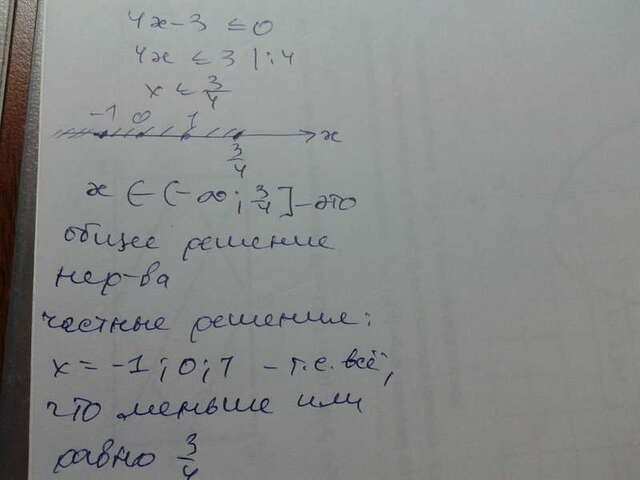 4x-3 ≤0
4x ≤ 3 |:4
x ≤ 3/4
-1 0 1 x
3/4
x ∈ (-∞; 3/4] - это
общее решение
нер-ва
частные решения:
x = -1; 0; 1 - т.е. всё,
что меньше или
равно 3/4